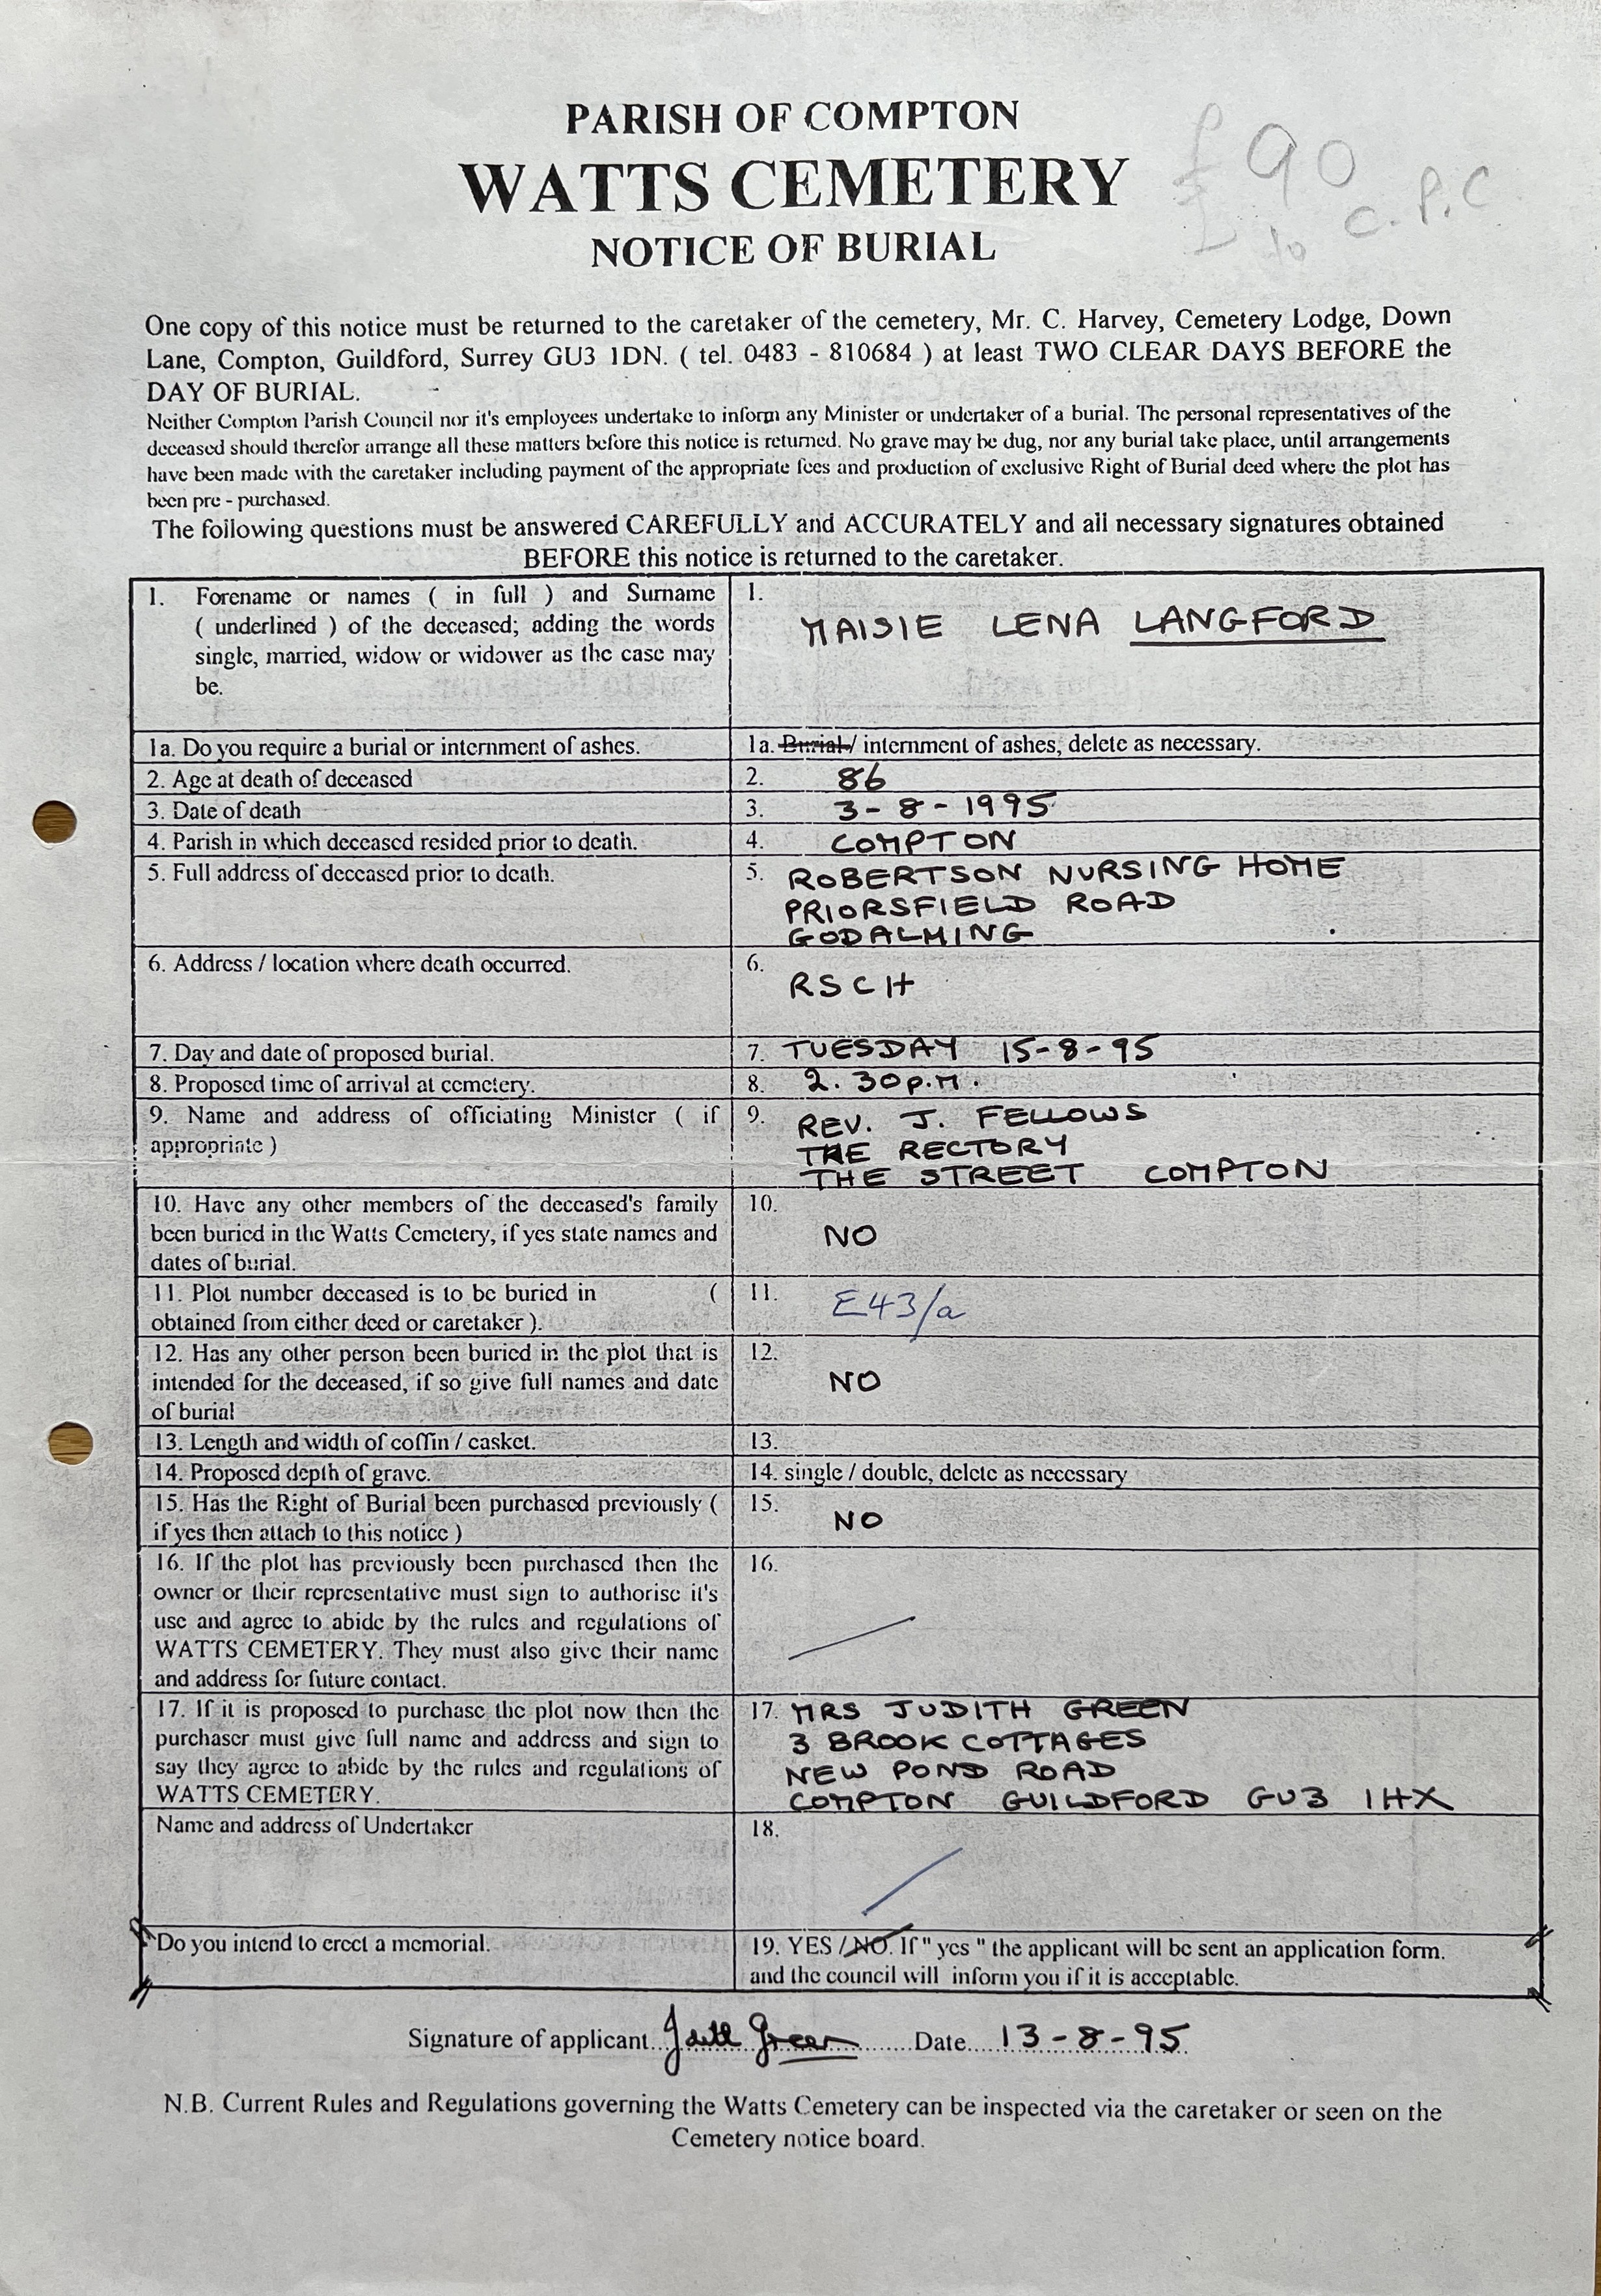 PARISH OF COMPTON
WATTS CEMETERY
NOTICE OF BURIAL
£90
to C.P.C
One copy of this notice must be returned to the caretaker of the cemetery, Mr. C. Harvey, Cemetery Lodge, Down
Lane, Compton, Guildford, Surrey GU3 1DN. ( tel. 0483 - 810684 ) at least TWO CLEAR DAYS BEFORE the
DAY OF BURIAL.
Neither Compton Parish Council nor it's employees undertake to inform any Minister or undertaker of a burial. The personal representatives of the
deceased should therefor arrange all these matters before this notice is returned. No grave may be dug, nor any burial take place, until arrangements
have been made with the caretaker including payment of the appropriate fees and production of exclusive Right of Burial deed where the plot has
been pre - purchased.
The following questions must be answered CAREFULLY and ACCURATELY and all necessary signatures obtained
BEFORE this notice is returned to the caretaker.
1. Forename or names ( in full ) and Surname
( underlined ) of the deceased; adding the words
single, married, widow or widower as the case may
be.
1.
MAISIE LENA LANGFORD
1a. Do you require a burial or internment of ashes.
1a. Burial / internment of ashes, delete as necessary.
2. Age at death of deceased
2. 86
3. Date of death
3. 3-8-1995
4. Parish in which deceased resided prior to death.
4. COMPTON
5. Full address of deceased prior to death.
5. ROBERTSON NURSING HOME
PRIORSFIELD ROAD
GODALMING
6. Address / location where death occurred.
6.
RSCH
7. Day and date of proposed burial.
7. TUESDAY 15-8-95
8. Proposed time of arrival at cemetery.
8. 2.30p.m.
9. Name and address of officiating Minister ( if
appropriate )
9. REV. J. FELLOWS
THE RECTORY
THE STREET COMPTON
10. Have any other members of the deceased's family
been buried in the Watts Cemetery, if yes state names and
dates of burial.
10.
NO
11. Plot number deceased is to be buried in (
obtained from either deed or caretaker ).
11. E43/a
12. Has any other person been buried in the plot that is
intended for the deceased, if so give full names and date
of burial
12.
NO
13. Length and width of coffin / casket.
13.
14. Proposed depth of grave.
14. single / double, delete as necessary
15. Has the Right of Burial been purchased previously (
if yes then attach to this notice )
15.
NO
16. If the plot has previously been purchased then the
owner or their representative must sign to authorise it's
use and agree to abide by the rules and regulations of
WATTS CEMETERY. They must also give their name
and address for future contact.
16.
17. If it is proposed to purchase the plot now then the
purchaser must give full name and address and sign to
say they agree to abide by the rules and regulations of
WATTS CEMETERY.
17. MRS JUDITH GREEN
3 BROOK COTTAGES
NEW POND ROAD
COMPTON GUILDFORD GU3 1HX
Name and address of Undertaker
18.
Do you intend to erect a memorial.
19. YES / NO. If " yes " the applicant will be sent an application form.
and the council will inform you if it is acceptable.
Signature of applicant Judith Green Date 13-8-95
N.B. Current Rules and Regulations governing the Watts Cemetery can be inspected via the caretaker or seen on the
Cemetery notice board.